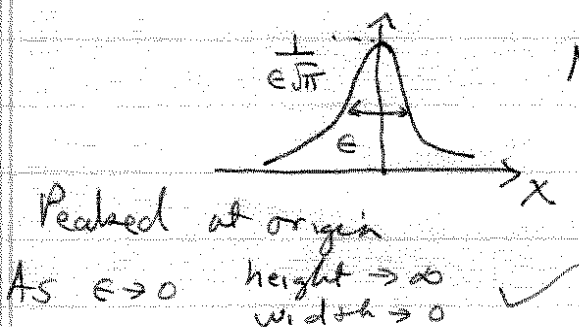 1
ε√π
ε
x
Peaked at origin
As ε→0 height → ∞
width → 0 ✓